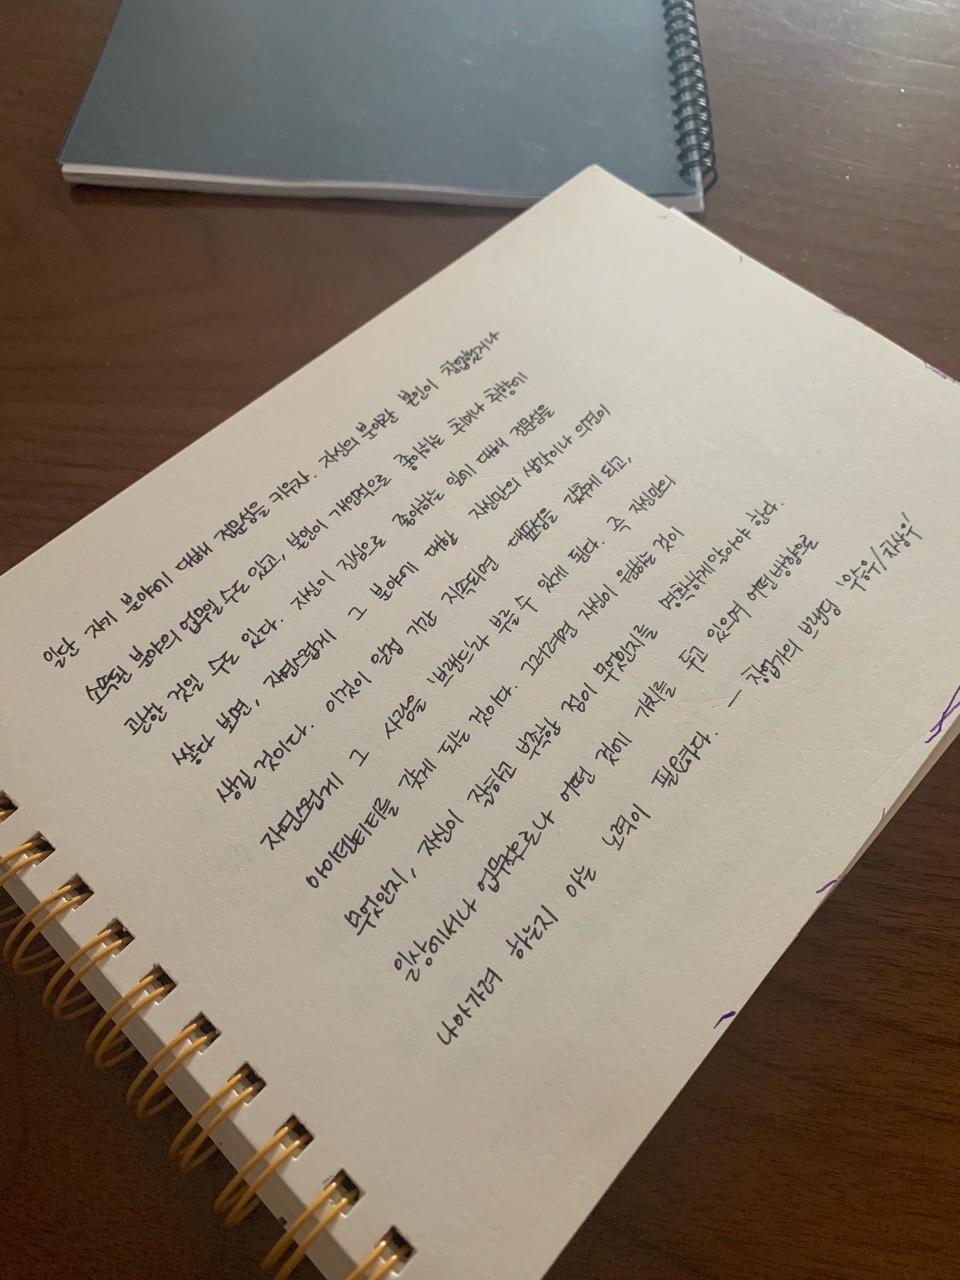 일단 자기 분야에 대해 전문성을 키우자. 자신의 분야란 본인이 창업했거나
소속된 분야의 업무일 수도 있고, 본인이 개인적으로 좋아하는 취미나 취향에
관한 것일 수도 있다. 자신이 진심으로 좋아하는 일에 대해 전문성을
쌓다 보면, 자연스럽게 그 분야에 대한 자신만의 생각이나 의견이
생길 것이다. 이것이 일정 기간 지속되면 대표성을 갖추게 되고,
자연스럽게 그 사람을 '브랜드'라 부를 수 있게 된다. 즉 자신만의
아이덴티티를 갖게 되는 것이다. 그러려면 자신이 원하는 것이
무엇인지, 자신이 잘하고 부족한 점이 무엇인지를 명확하게 알아야 한다.
일상에서나 업무적으로나 어떤 것에 가치를 두고 있으며 어떤 방향으로
나아가려 하는지 아는 노력이 필요하다.
— 창업가의 브랜딩 '우승우/차상우'